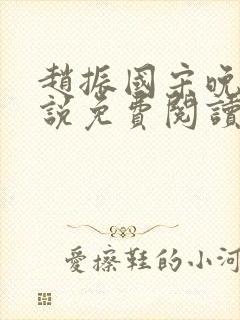 趙振國宋晚
說免費閱讀
愛擦鞋的小河